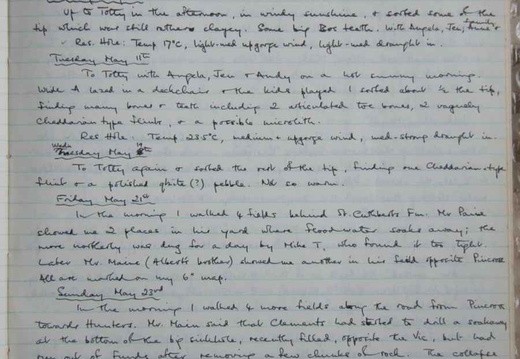 Up to Totty in the afternoon, in windy sunshine, & sorted some of the
tip which was still rather clayey. Some big Bos teeth. With Angela, Jen,
Res. Hole. Temp 17°C, light-med upgorge wind, light-med draught in.
Tuesday May 11th
To Totty with Angela, Jen & Andy on a hot sunny morning.
While A lazed in a deckchair & the kids played I sorted about ½ the tip,
finding many bones & teeth including 2 articulated toe bones, 2 vaguely
Cheddarian type flints, & a possible microlith.
Res Hole. Temp 23.5°c, medium upgorge wind, med-strong draught in.
Wednesday May
To Totty again & sorted the rest of the tip, finding one Cheddarian-type
flint & a polished qtzite (?) pebble. Not so warm.
Friday May 21st
In the morning I walked 4 fields behind St. Cuthberts Fm. Mr Paine
showed me 2 places in his yard where floodwater soaks away; the
more northerly was dug for a day by Mike T, who found it too tight.
Later Mr. Maine (Alberts brother) showed me another in his field opposite Pinecroft
All are marked on my 6" map.
Sunday May 23rd
In the morning I walked 4 more fields along the road from Pinecroft
towards Hunters. Mr. Main said that Clements had started to drill a soakaway
at the bottom of the big sinkhole, recently filled, opposite the Vic, but had
run out of funds after removing a few chunks of rock. The collapse